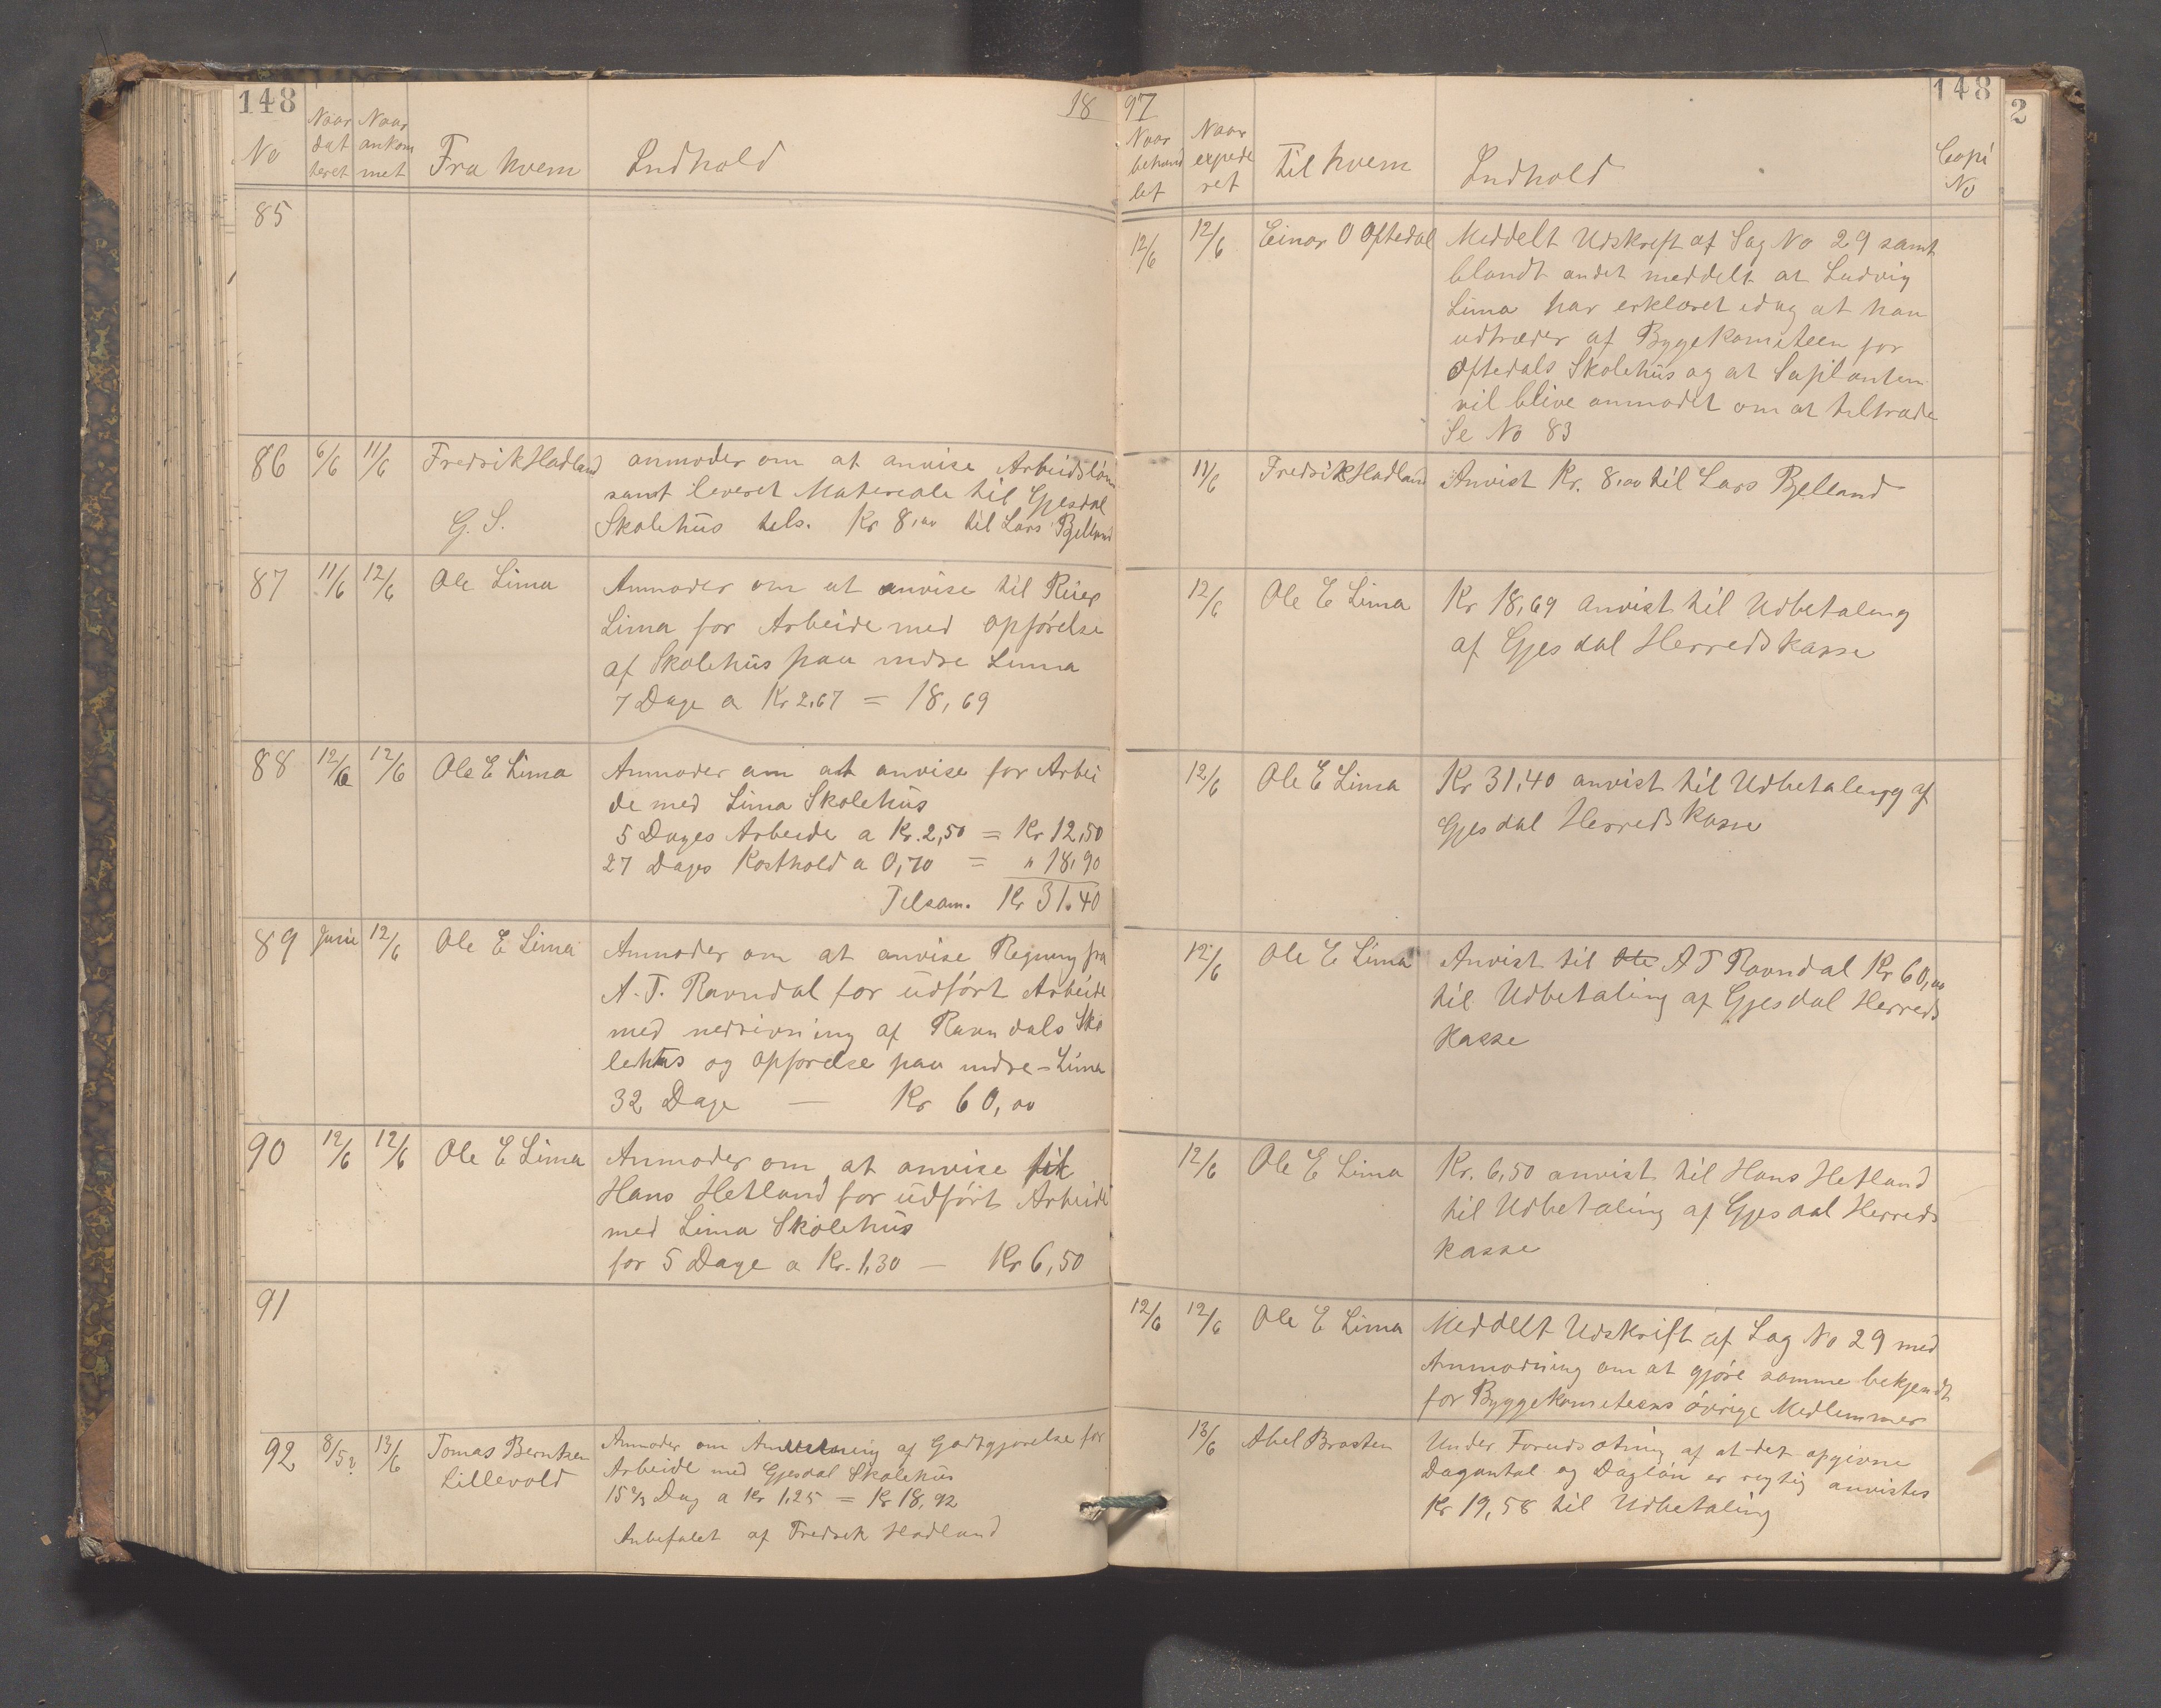 148
18
No
Naar datteret
Naar ankommet
Fra hvem
Indhold
85
86 6/6 11/6 Fredrik Hadland anmoder om at anvise Arbeidsløn
samt leveret Materiale til Gjesdal
G. S. Skolehus tils. Kr 8,00 til Lars Bjelland
87 11/6 12/6 Ole Lima Anmoder om at anvise til
Lima for Arbeide med opførelse
af Skolehus paa indre Lima
7 Dage a Kr 2,67 = 18,69
88 12/6 12/6 Ole E Lima Anmoder om at anvise for Arbei
de med Lima Skolehus
5 Dages Arbeide a Kr. 2,50 = Kr 12,50
27 Dages Kosthold a 0,70 = " 18,90
Tilsam. Kr 31,40
89 Juni 12/6 Ole E Lima Anmoder om at anvise Regning fra
A. T. Ravndal for udført Arbeide
med nedrivning af Ravndals Sko
lehus og opførelse paa indre-Lima
32 Dage — Kr 60,00
90 12/6 12/6 Ole E Lima Anmoder om at anvise til
Hans Hetland for udført Arbeide
med Lima Skolehus
for 5 Dage a Kr. 1,30 — Kr 6,50
91
92 8/5? 13/6 Tomas Berntsen Anmoder om Anvisning af Godtgjørelse for
Lillevold Arbeide med Gjesdal Skolehus
15 2/3 Dag a Kr 1,25 = Kr 18,92
Anbefalet af Fredrik Hadland
97
148
2
Naar behandlet
Naar expederet
Til hvem
Indhold
Copi No
12/6 12/6 Einar O Oftedal Meddelt Udskrift af Sag No 29 samt
blandt andet meddelt at Ludvig
Lima har erklæret idag at han
udtræder af Byggekomiteen for
Oftedals Skolehus og at Suplanten
vil blive anmodet om at tiltræde
Se No 83
11/6 Fredrik Hadland Anvist Kr. 8,00 til Lars Bjelland
12/6 Ole E Lima Kr 18,69 anvist til Udbetaling
af Gjesdal Herredskasse
12/6 Ole E Lima Kr 31,40 anvist til Udbetaling af
Gjesdal Herredskasse
12/6 Ole E Lima Anvist til Ole A T Ravndal Kr 60,00
til Udbetaling af Gjesdal Herreds
kasse
12/6 Ole E Lima Kr. 6,50 anvist til Hans Hetland
til Udbetaling af Gjesdal Herreds
kasse
12/6 12/6 Ole E Lima Meddelt Udskrift af Sag No 29 med
Anmodning om at gjøre samme bekjendt
for Byggekomiteens øvrige Medlemmer
13/6 Abel Brasten Under Forudsætning af at det opgivne
Dagantal og Dagløn er rigtig anvistes
Kr 19,58 til Udbetaling